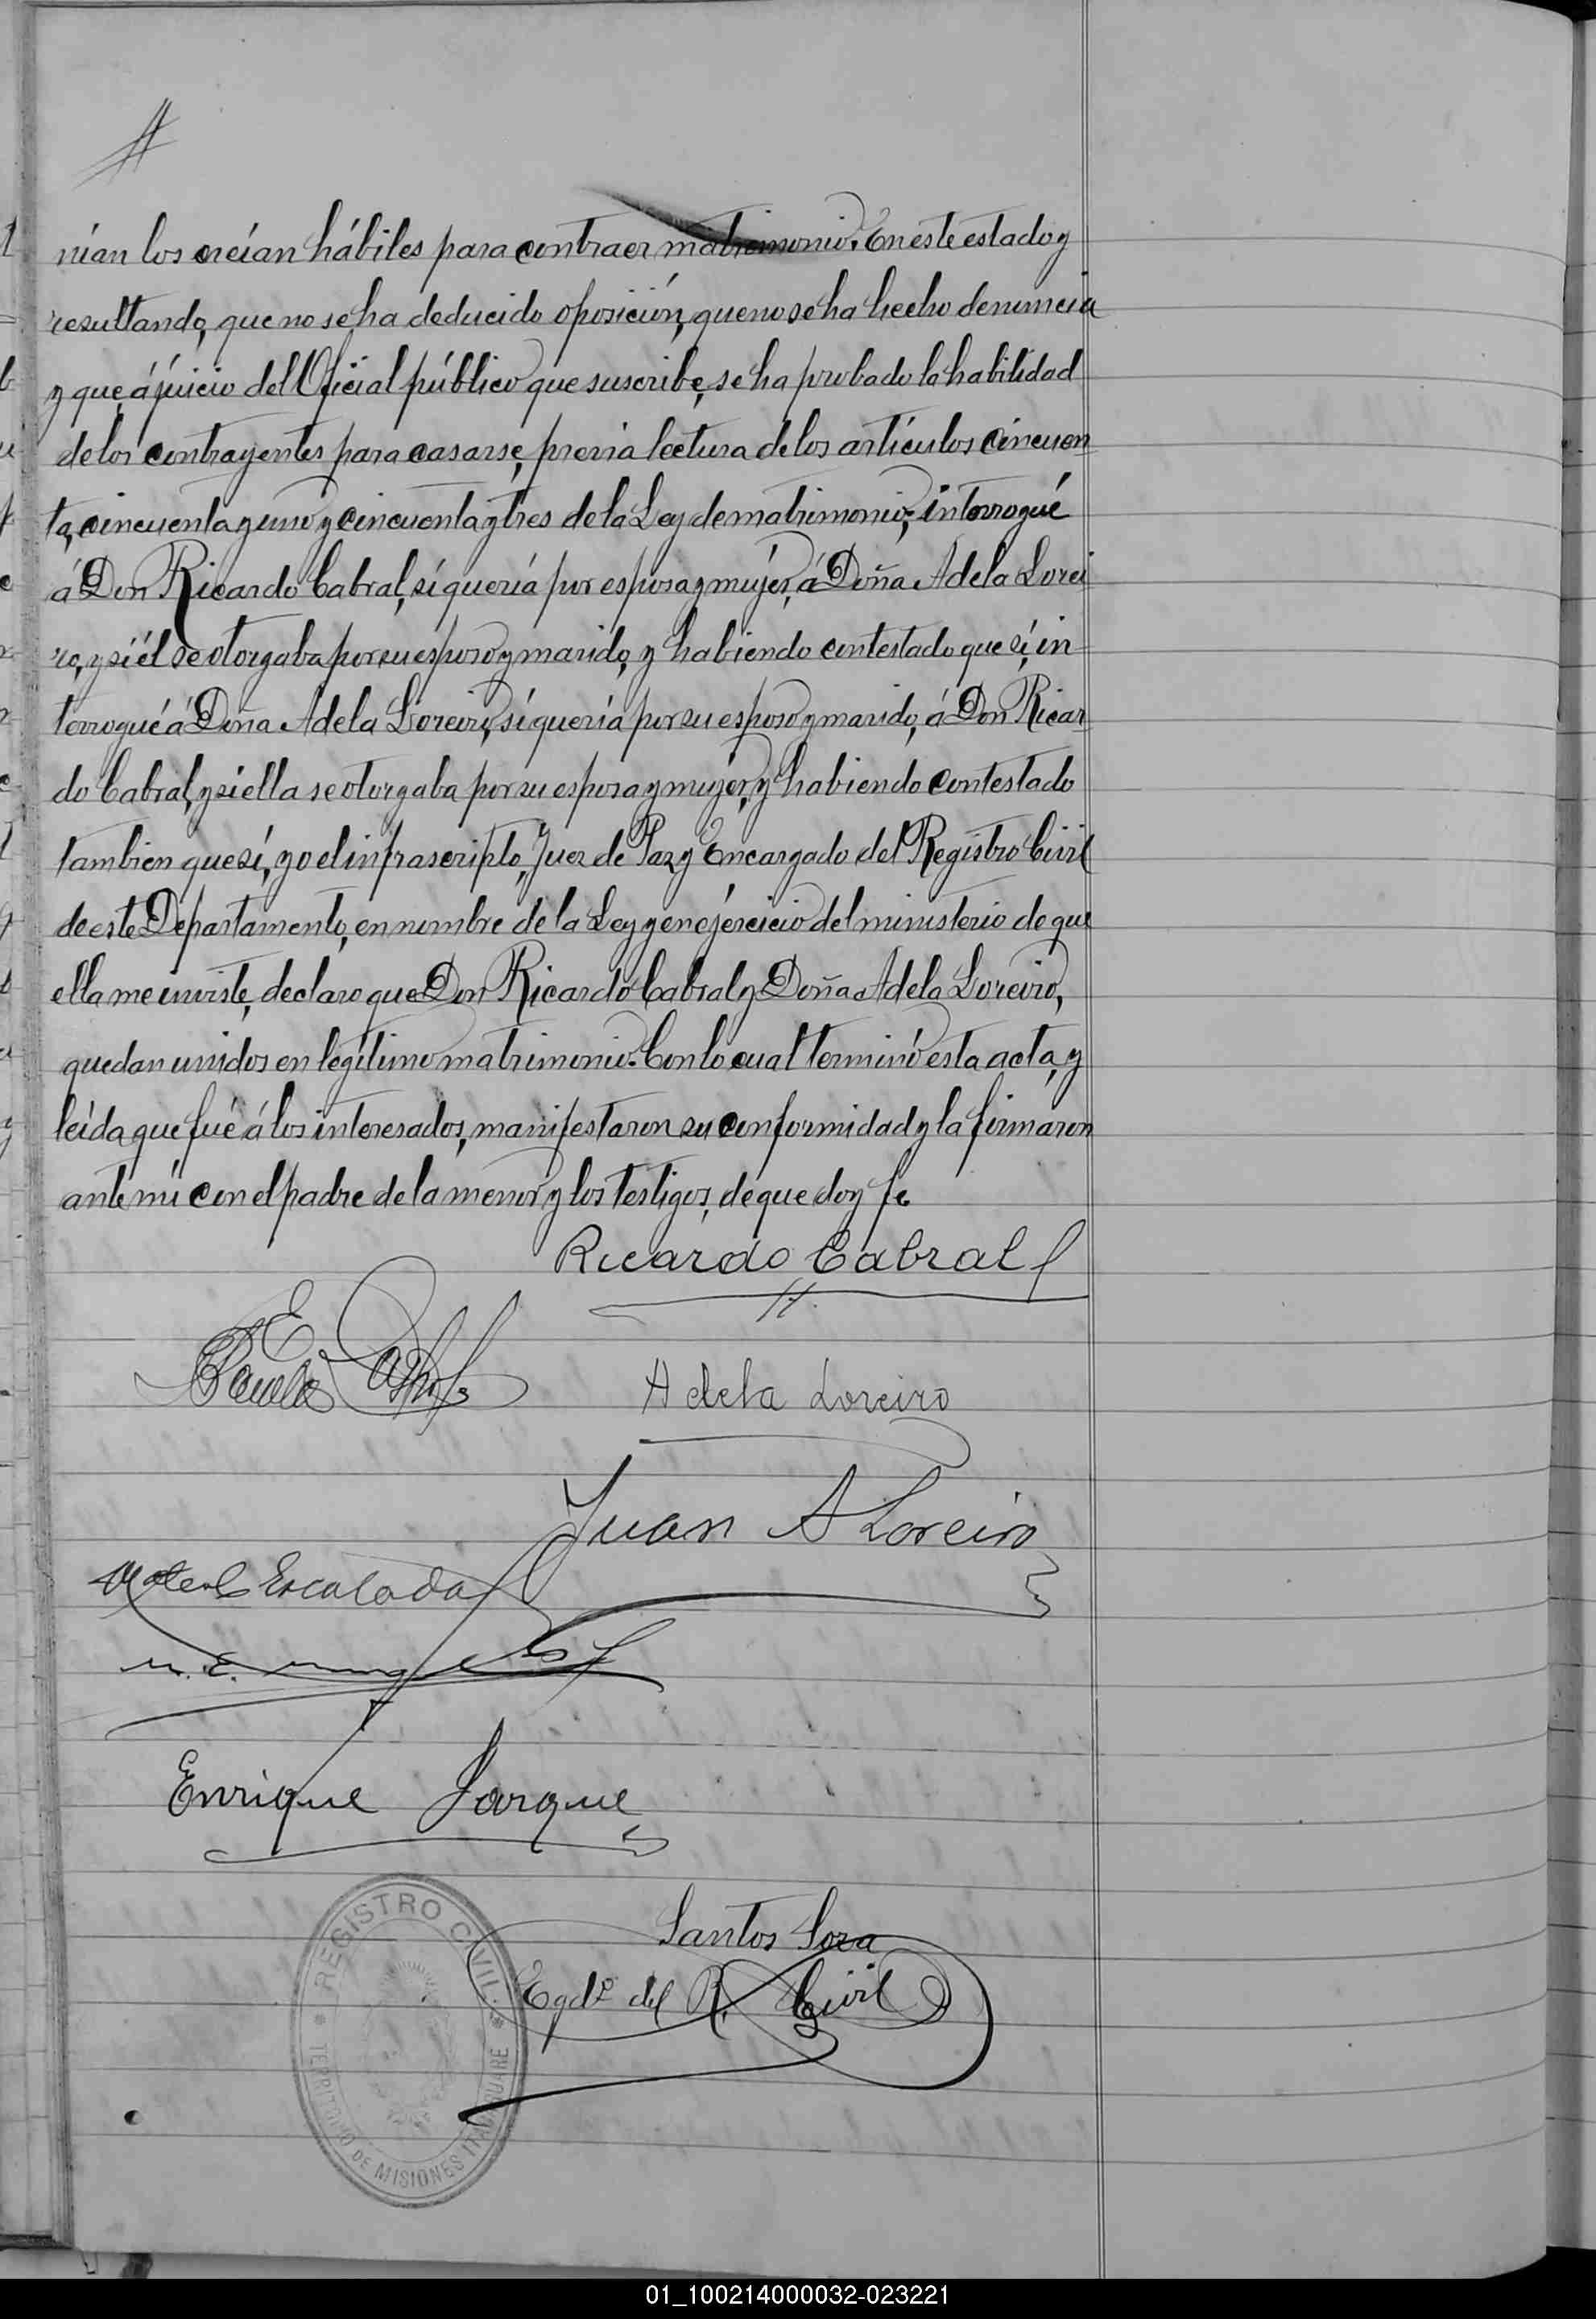 nían los creían hábiles para contraer matrimonio. En este estado y
resultando, que no se ha deducido oposición, que no se ha hecho denuncia
y que, á juicio del Oficial público que suscribe, se ha probado la habilidad
de los contrayentes para casarse, previa lectura de los artículos cincuen
ta, cincuenta y uno y cincuenta y tres de la Ley de matrimonio; interrogué
á Don Ricardo Cabral, si quería por esposa y mujer, á Doña Adela Lorei
ro, y si él se otorgaba por su esposo y marido, y habiendo contestado que sí, in
terrogué á Doña Adela Loreiro, si quería por su esposo y marido, á Don Ricar
do Cabral, y si ella se otorgaba por su esposa y mujer, y habiendo contestado
tambien que sí, yo el infrascripto, Juez de Paz y Encargado del Registro Civil
de este Departamento, en nombre de la Ley y en ejercicio del ministerio de que
ella me inviste, declaro que Don Ricardo Cabral y Doña Adela Loreiro,
quedan unidos en legítimo matrimonio. Con lo cual terminó esta acta, y
leída que fué á los interesados, manifestaron su conformidad y la firmaron
ante mí con el padre de la menor y los testigos, de que doy fe.
Ricardo Cabral
Adela Loreiro
Juan A Loreiro
Escalada
Enrique Jarque
Santos Sosa
Egdo del R. Civil
REGISTRO CIVIL
TERRITORIO DE MISIONES
01_100214000032-023221